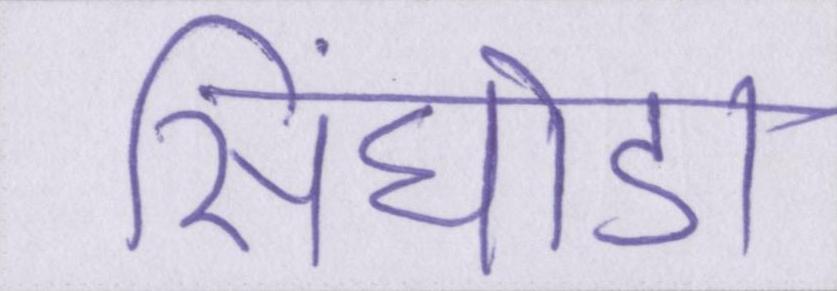 सिंघोडा